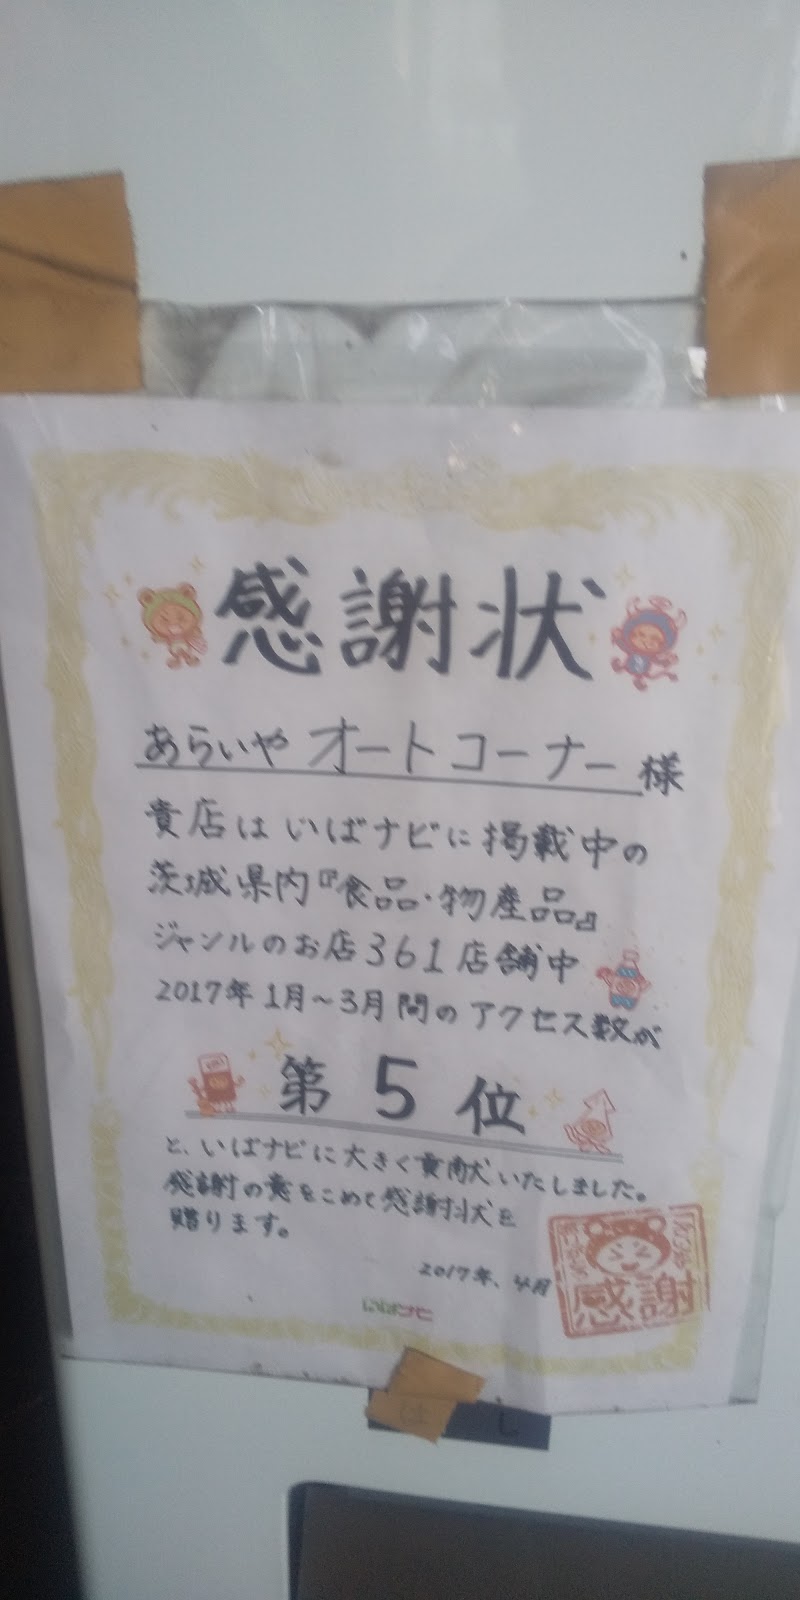 感謝状
あらいや オートコーナー 様
貴店は いばナビに 掲載中の
茨城県内『食品・物産品』
ジャンルのお店361店舗中
2017年 1月〜3月間のアクセス数が
第 5 位
と、いばナビに大きく貢献いたしました。
感謝の意をこめて感謝状を
贈ります。
2017年、4月
いばナビ
感謝